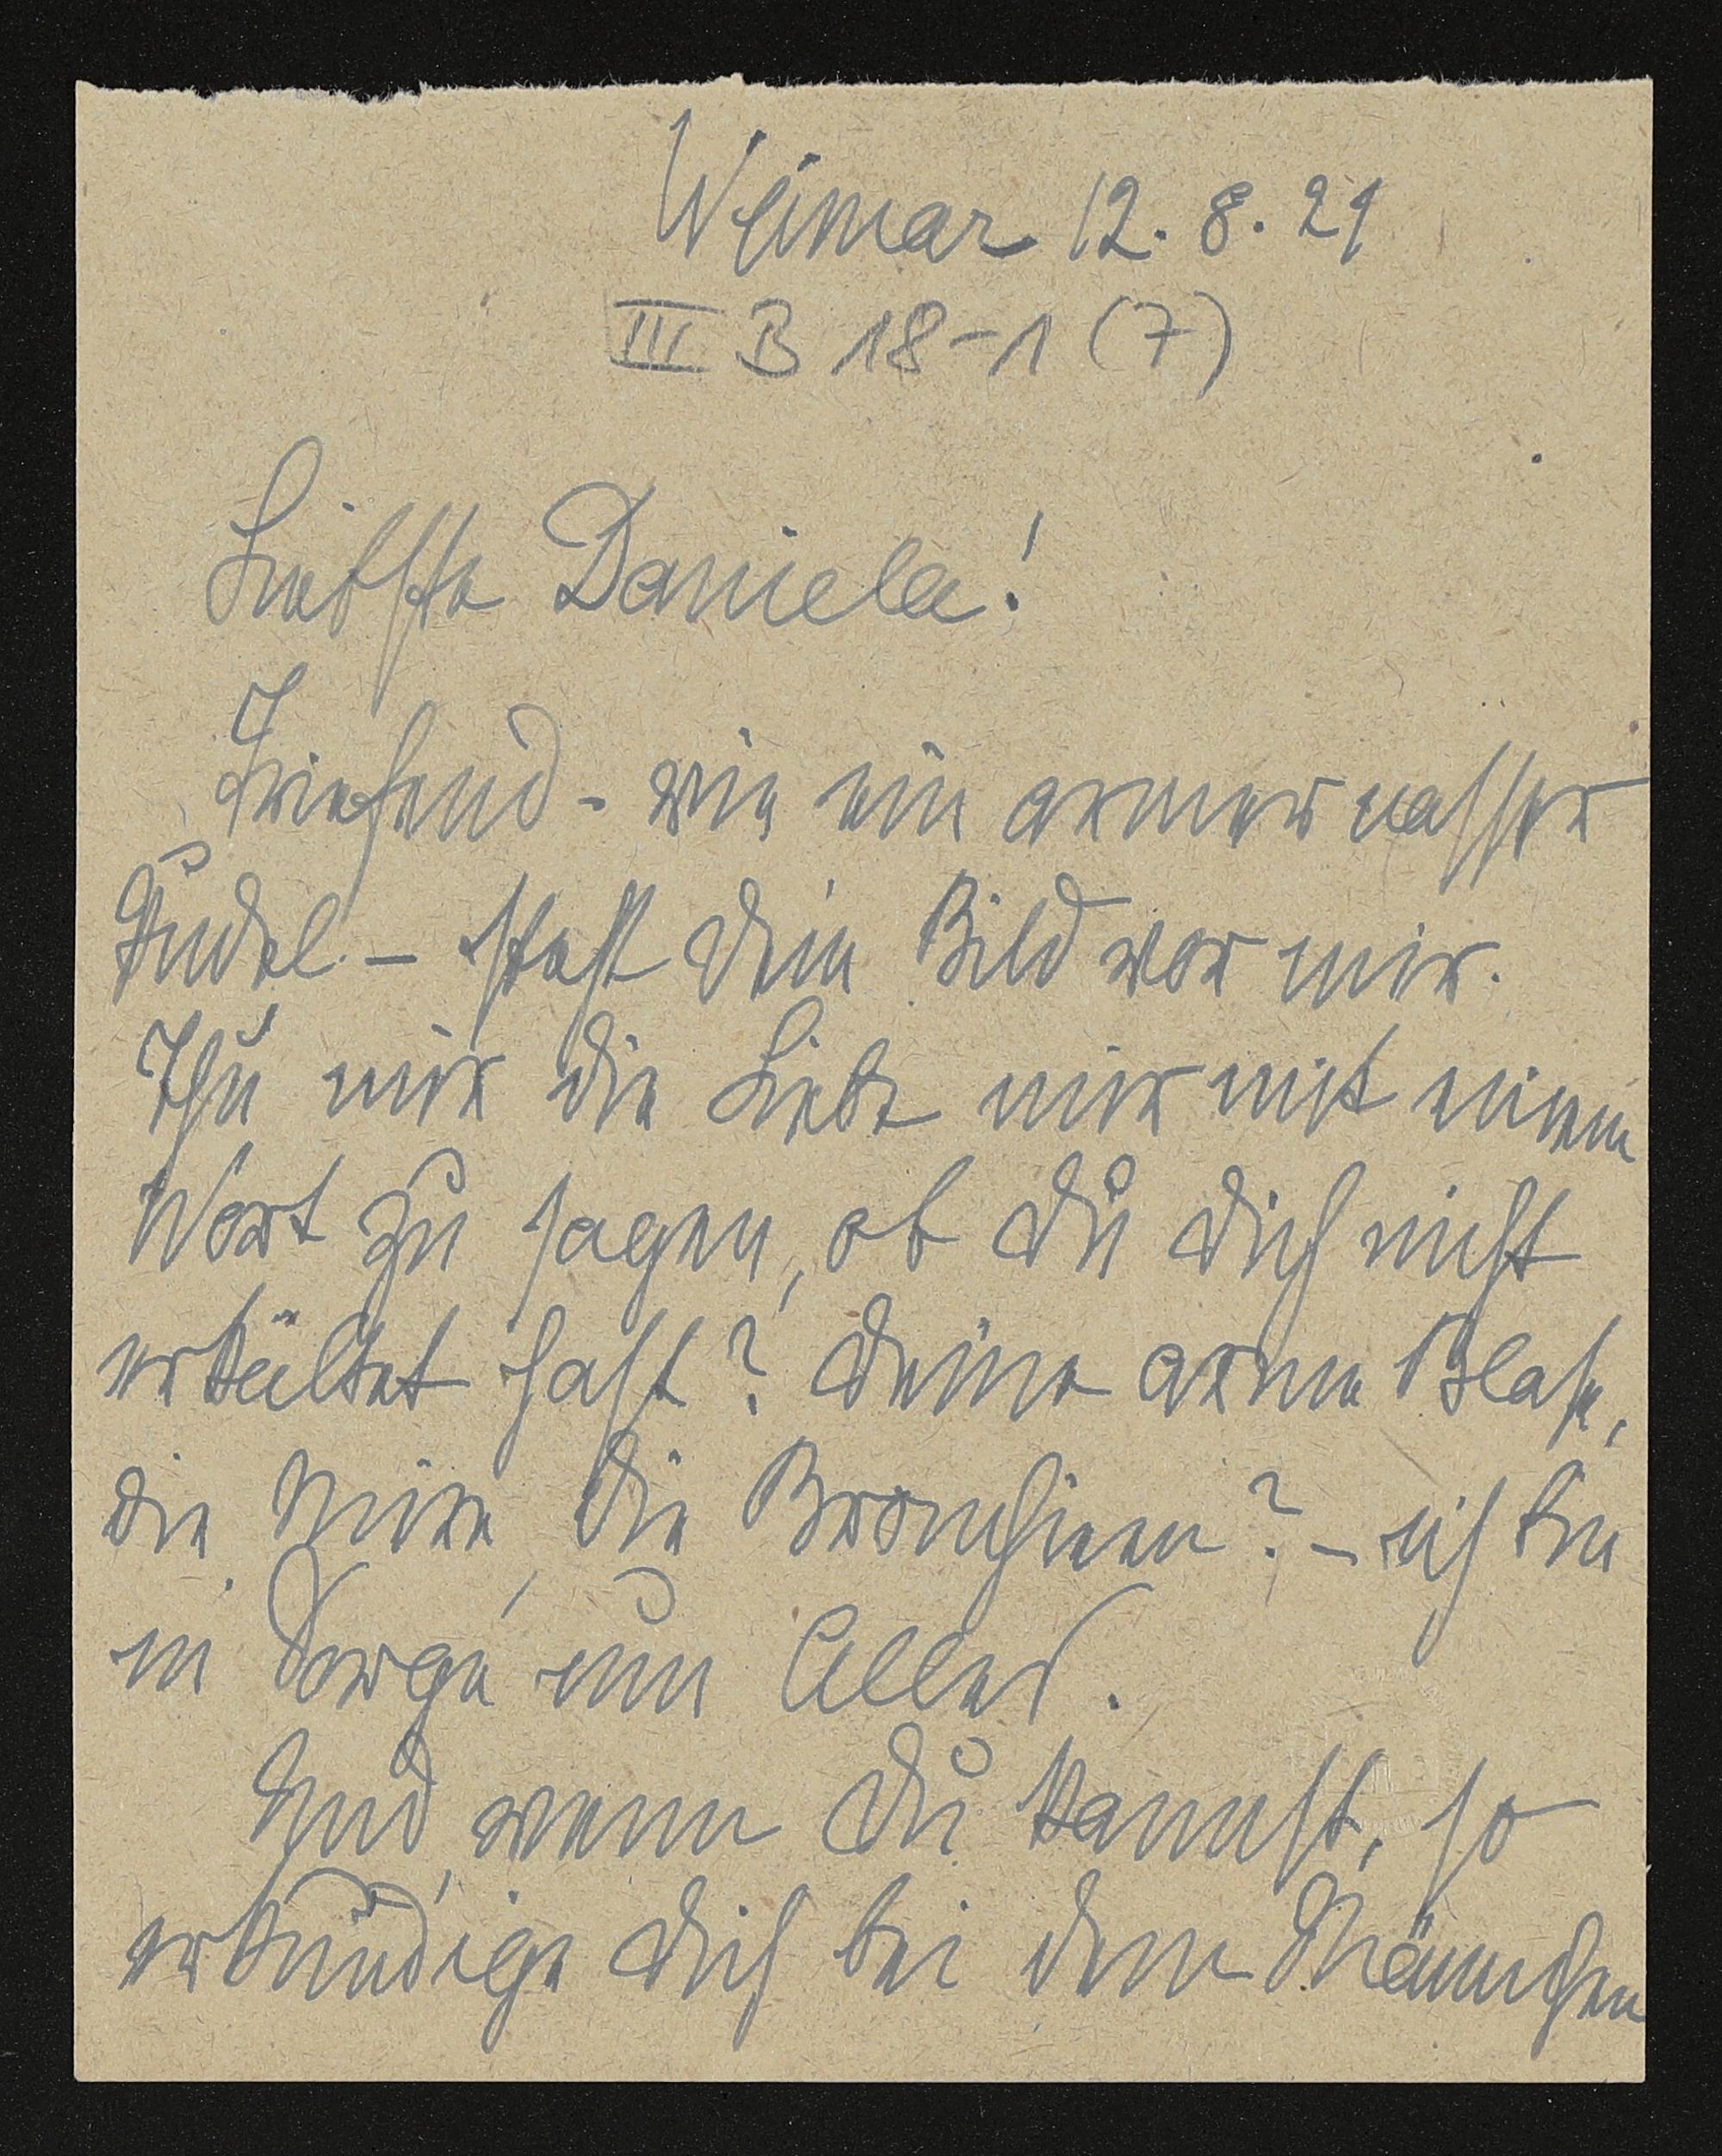 Weimar 12. 8. 29
III B 18-1 (7)
Liebste Daniela!
Triefend - wie ein armer nasser
Pudel - steht dein Bild vor mir.
Thu mir die Liebe mir mit einem
Wort zu sagen, ob du dich nicht
erkältet hast? deine arme Blase,
die Niere, die Bronchieen? - ich bin
in Sorge um Alles.
Und, wenn du kannst, so
erkundige dich bei dem Männchen